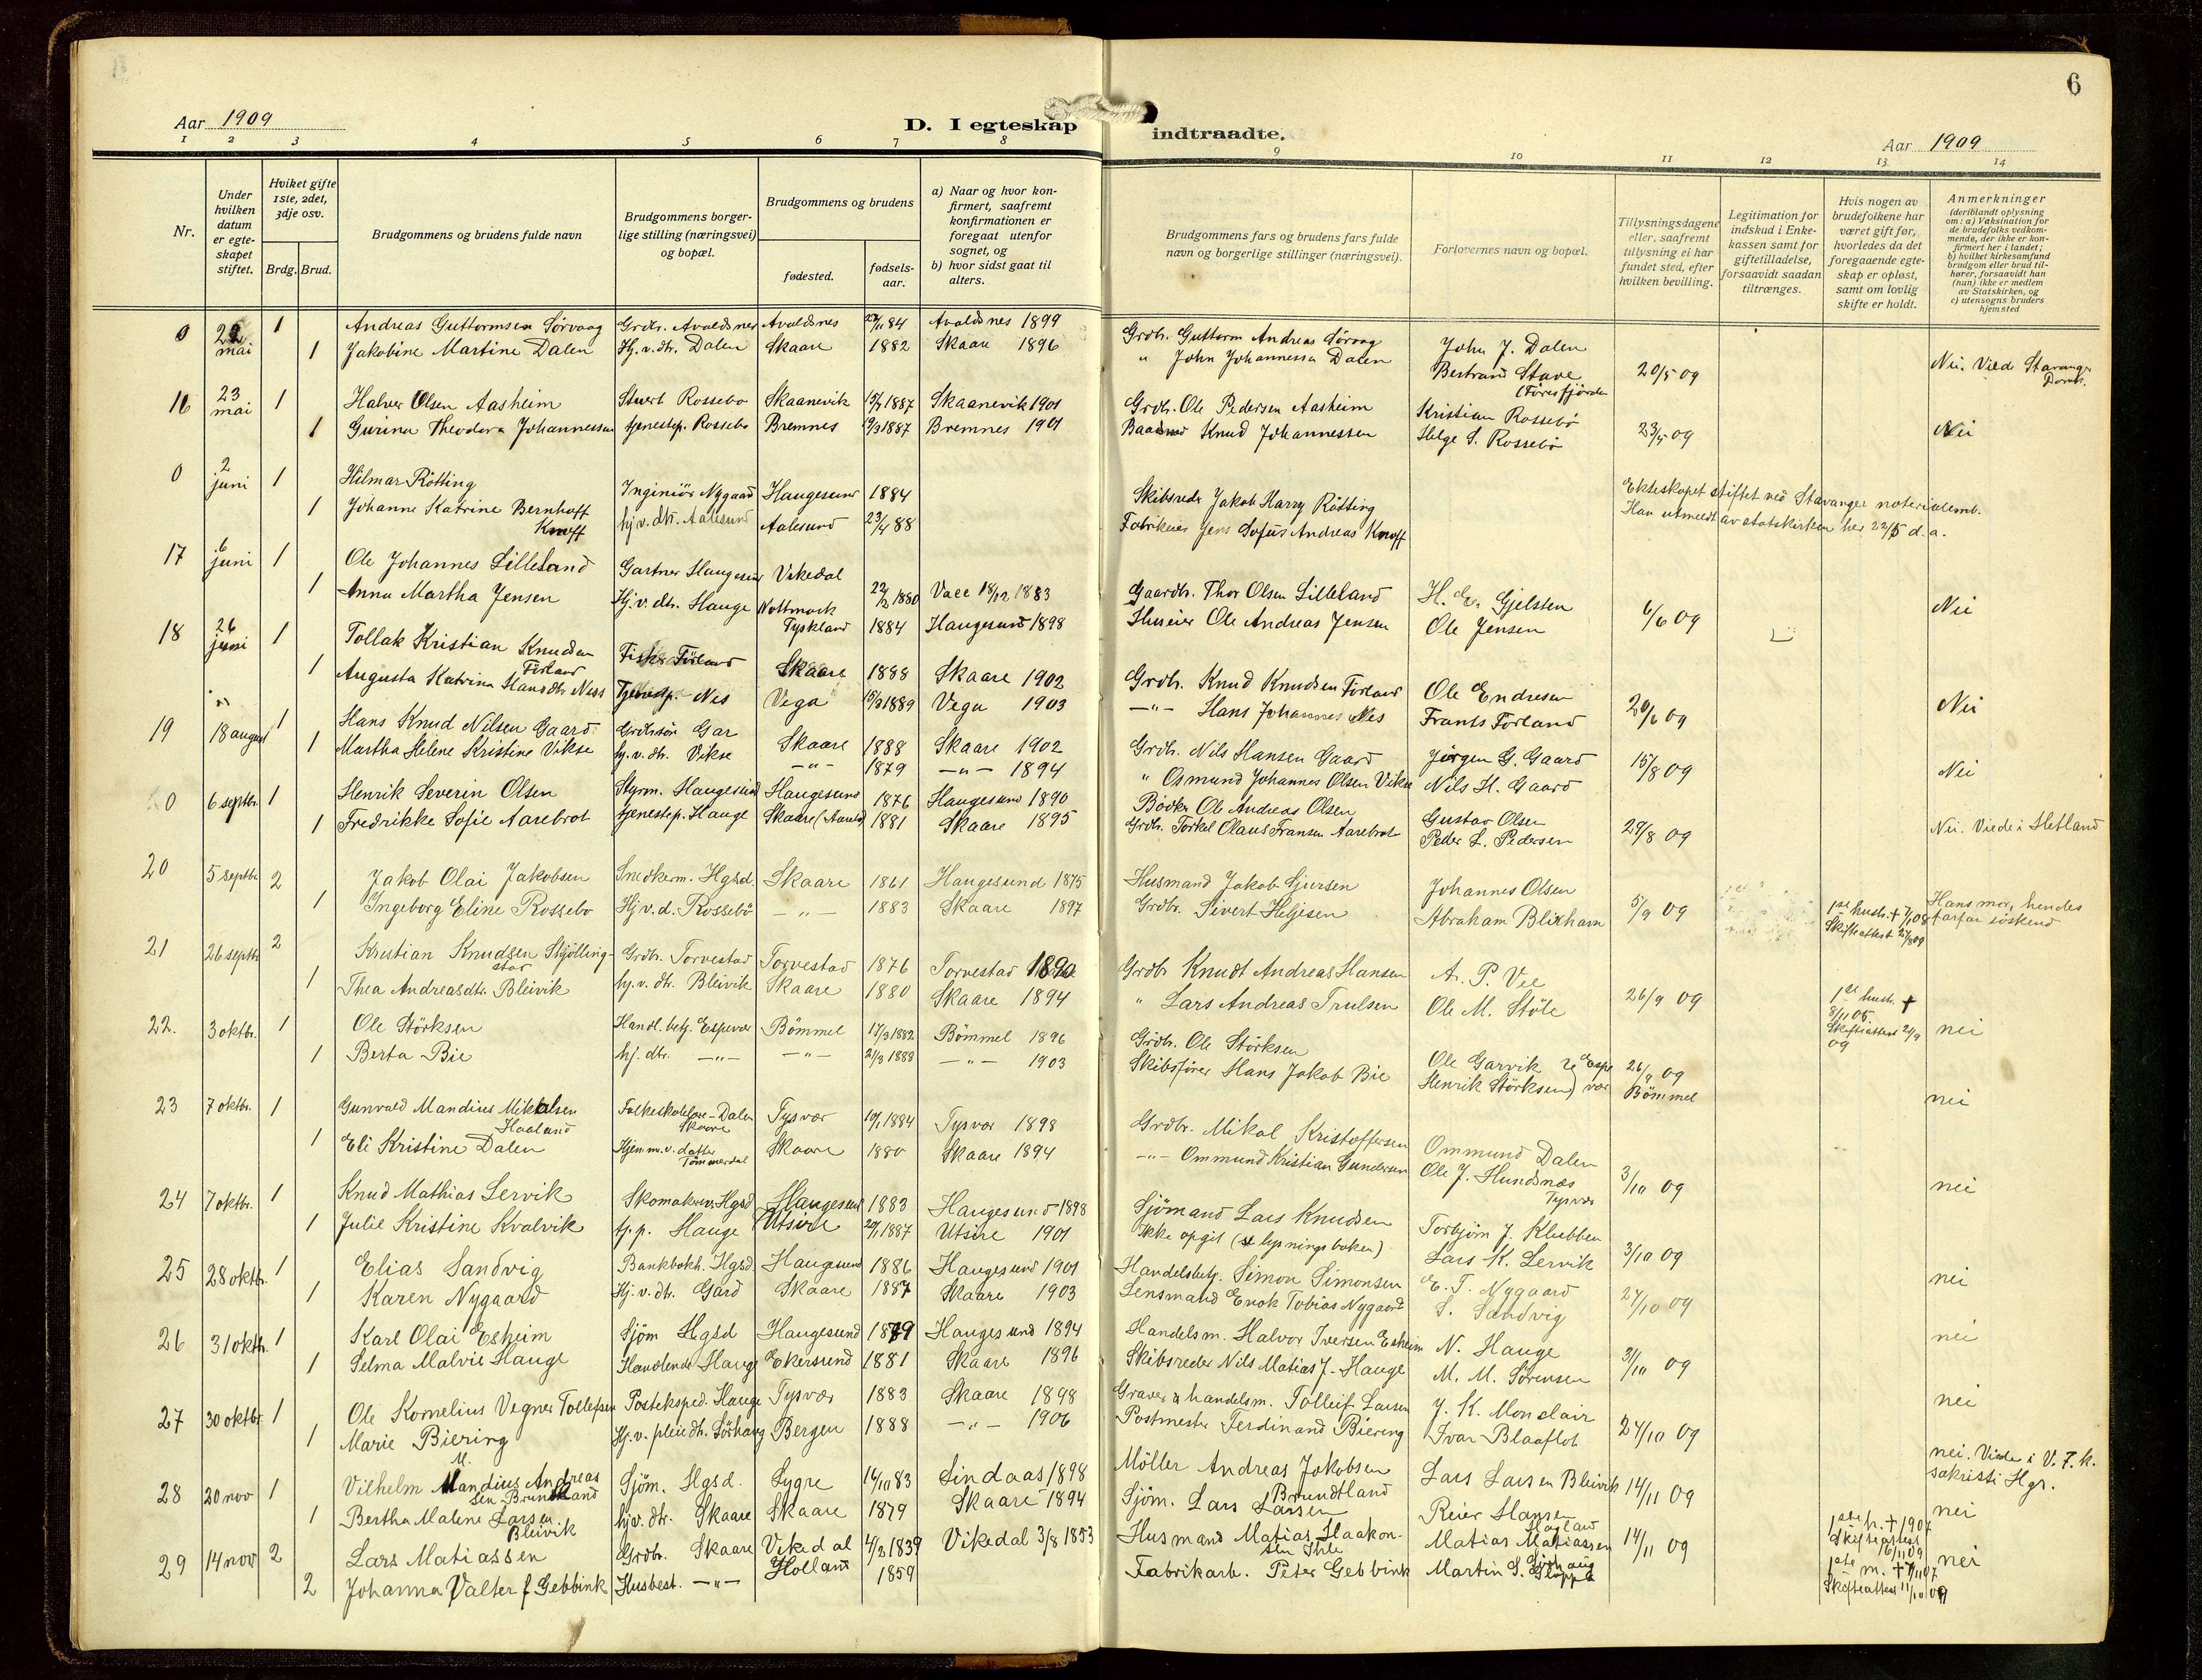 6
Aar 1909
D. I egteskap indtraadte.
Aar 1909
1 2 3 4 5 6 7 8 9 10 11 12 13 14
Nr.
Under hvilken datum er egteskapet stiftet.
Hviket gifte 1ste, 2det, 3dje osv.
Brdg. Brud.
Brudgommens og brudens fulde navn
Brudgommens borgerlige stilling (næringsvei) og bopæl.
Brudgommens og brudens
fødested.
fødselsaar.
a) Naar og hvor konfirmert, saafremt konfirmationen er foregaat utenfor sognet, og
b) hvor sidst gaat til alters.
Brudgommens fars og brudens fars fulde navn og borgerlige stillinger (næringsvei).
Forlovernes navn og bopæl.
Tillysningsdagene eller, saafremt tillysning ei har fundet sted, efter hvilken bevilling.
Legitimation for indskud i Enkekassen samt for giftetilladelse, forsaavidt saadan tiltrænges.
Hvis nogen av brudefolkene har været gift før, hvorledes da det foregaaende egteskap er opløst, samt om lovlig skifte er holdt.
Anmerkninger
(deriblandt oplysning om: a) Vaksination for de brudefolks vedkommende, der ikke er konfirmert her i landet; b) hvilket kirkesamfund brudgom eller brud tilhører, forsaavidt han (hun) ikke er medlem av Statskirken, og c) utensogns bruders hjemsted
0 22 mai 1 Andreas Guttormsen Sørvaag Grdbr. Avaldsnes Avaldsnes 84 Avaldsnes 1899 Grdbr. Guttorm Andreas Sørvaag John J. Dalen
1 Jakobine Martine Dalen Hj.v.dtr. Dalen Skaare 1882 Skaare 1896 " John Johannessen Dalen Bertrand Stave (Førresfjorden 20/5 09 Nei. Viede Stavanger Domk.
16 23 mai 1 Halvor Olsen Aasheim Stuert Rossebø Skaanevik 1887 Skaanevik 1901 Grdbr. Ole Pedersen Aasheim Kristian Rossebø
1 Gurina Theodora Johannessen tjenestep. Rossebø Bremnes 1887 Bremnes 1901 Baadmd Knud Johannessen Helge S. Rossebø 23/5 09 Nei
0 2 juni 1 Hilmar Røtting Inginiør Nygaard Haugesund 1884 Skibsreder Jakob Harry Røtting Ekteskapet stiftet ved Stavanger notarialemb.
1 Johanne Katrine Bernhoff Knoff hj.v.dtr. Aalesund Aalesund 23/4 88 Fabrikeier Jens Sofus Andreas Knoff Han utmeldt av statskirken her 22/5 d.a.
17 6 juni 1 Ole Johannes Lilleland Gartner Haugesund Vikedal 22/2 1880 Vaee 18/12 1883 Gaardbr. Thor Olsen Lilleland H. Gjelsten
1 Anna Martha Jensen Hj.v.dtr. Hauge Nottmark Tyskland 1884 Haugesund 1898 Huseier Ole Andreas Jensen Ole Jensen 6/6 09 Nei
18 26 juni 1 Tollak Kristian Knudsen Førland Fisker Førland Skaare 1888 Skaare 1902 Grdbr. Knud Knudsen Førland Ole Endresen
1 Augusta Katrina Hansdtr Ness Tjenestp. Nes Vega 15/3 1889 Vega 1903 —"— Hans Johannes Nes Frants Førland 20/6 09 Nei
19 18 august 1 Hans Knud Nilsen Gaard Grdbrsøn Gar Skaare 1888 Skaare 1902 Grdbr. Nils Hansen Gaard Jørgen G. Gaard
1 Martha Helene Kristine Vikse hj.v.dtr. Vikse —"— 1879 —"— 1894 " Osmund Johannes Olsen Vikse Nils H. Gaard 15/8 09 Nei
0 6 septbr. 1 Henrik Severin Olsen Styrm. Haugesund Haugesund 1876 Haugesund 1890 Bødker Ole Andreas Olsen Gustav Olsen
1 Fredrikke Sofie Aarebrot tjenestep. Hauge Skaare 1881 Skaare 1895 Grdbr. Torkel Olaus Fransen Aarebrot Peder L. Pedersen 29/8 09 Nei. Viede i Hetland
20 5 septbr 2 Jakob Olai Jakobsen Snedkerm. Hgsd. Skaare 1861 Haugesund 1875 Husmand Jakob Sjursen Johannes Olsen
1 Ingeborg Eline Rossebø Hj.v.d. Rossebø —"— 1883 Skaare 1897 Grdbr. Sivert Heljesen Abraham Blikham 5/9 09 1ste hustr. † 7/1 08 Skifteattest Hans mor, hendes farfar søskend
21 26 septbr 2 Kristian Knudsen Skjøllingstad Grdbr. Torvestad Torvestad 1876 Torvestad 1890 Grdbr Knudt Andreas Hansen A. P. Vee
1 Thea Andreasdtr. Bleivik hj.v.dtr. Bleivik Skaare 1880 Skaare 1894 " Lars Andreas Trulsen Ole M. Støle 26/9 09 1ste hustr. † 8/11 05 Skifteattest 2/9 09 nei
22. 3 oktbr. 1 Ole Størksen Handl. betj. Espevær Bømmel 17/3 1882 Bømmel 1896 Grdbr. Ole Størksen Ole Garvik
1 Berta Bie hj.dtr. —"— —"— 21/3 1888 —"— 1903 Skibsfører Hans Jakob Bie Henrik Størksen) Espevær 26/9 09 Bømmel nei
23 7 oktbr. 1 Gunvald Mandius Mikalsen Haaland Folkeskolelære-Dalen Skaare Tysvær 1884 Tysvær 1898 Grdbr. Mikal Kristoffersen Ommund Dalen
1 Eli Kristine Dalen Hjem.v. datter Tømmerdal Skaare 1880 Skaare 1894 —"— Ommund Kristian Gundersen Ole J. Hundsnæs Tysvær 3/10 09 nei
24 7 oktbr. 1 Knud Mathias Lervik Skomakerv. Hgsd Haugesund 1883 Haugesund 1898 Sjømand Lars Knudsen Torbjørn J. Klubben
1 Julie Kristine Kvalvik tj.p. Hauge Utsire 20/1 1887 Utsire 1901 Ikke opgit (se lysningsboken) Lars K. Lervik 3/10 09 nei
25 28 oktbr. 1 Elias Sandvig Bankbokh. Hgsd Haugesund 1886 Haugesund 1901 Handelsbetj. Simon Simonsen E. T. Nygaard
1 Karen Nygaard Hj.v.dtr. Gard Skaare 1887 Skaare 1903 Lensmand Enok Tobias Nygaard S. Sandvig 24/10 09 nei
26 31 oktbr. 1 Karl Olai Esheim Sjøm Hgsd Haugesund 1879 Haugesund 1894 Handelsm. Halvor Iversen Esheim N. Hauge
1 Selma Malvie Hauge Handlende Hauge Ekersund 1881 Skaare 1896 Skibsreder Nils Matias J. Hauge M. M. Sørensen 31/10 09 nei
27 30 oktbr. 1 Ole Kornelius Vegner Tollefsen Posteksped. Hauge Tysvær 1883 Skaare 1898 Graver & handelsm. Tolleif Larsen J. K. Monclair
1 Marie Biering Hj.v. pleiedtr. Sørhaug Bergen 1888 —"— 1906 Postmester Ferdinand Biering Ivar Blaaflot 24/10 09 nei. Viede i V. F. k. sakristi Hgs.
28 20 nov 1 Vilhelm Mandius Andreassen Brundtland Sjøm. Hgsd. Lygre 14/10 83 Lindaas 1898 Møller Andreas Jakobsen Brundtland Lars Larsen Bleivik
1 Bertha Malene Larsen Bleivik hj.v.dtr. Skaare Skaare 1879 Skaare 1894 Sjøm. Lars Larsen Reier Hansen 14/11 09 nei
29 14 nov 2 Lars Matiassen Grdbr. Skaare Vikedal 4/2 1839 Vikedal 3/8 1853 Husmand Matias Haakonsen Ihle Matias Matiassen 14/11 09 1ste h. † 1907 Skifteattest nei
2 Johanna Valter f Gebbink Husbest. —"— Holland 1859 Fabrikarb. Peter Gebbink Martin S. 1ste m. † Skifteattest 11/10 09